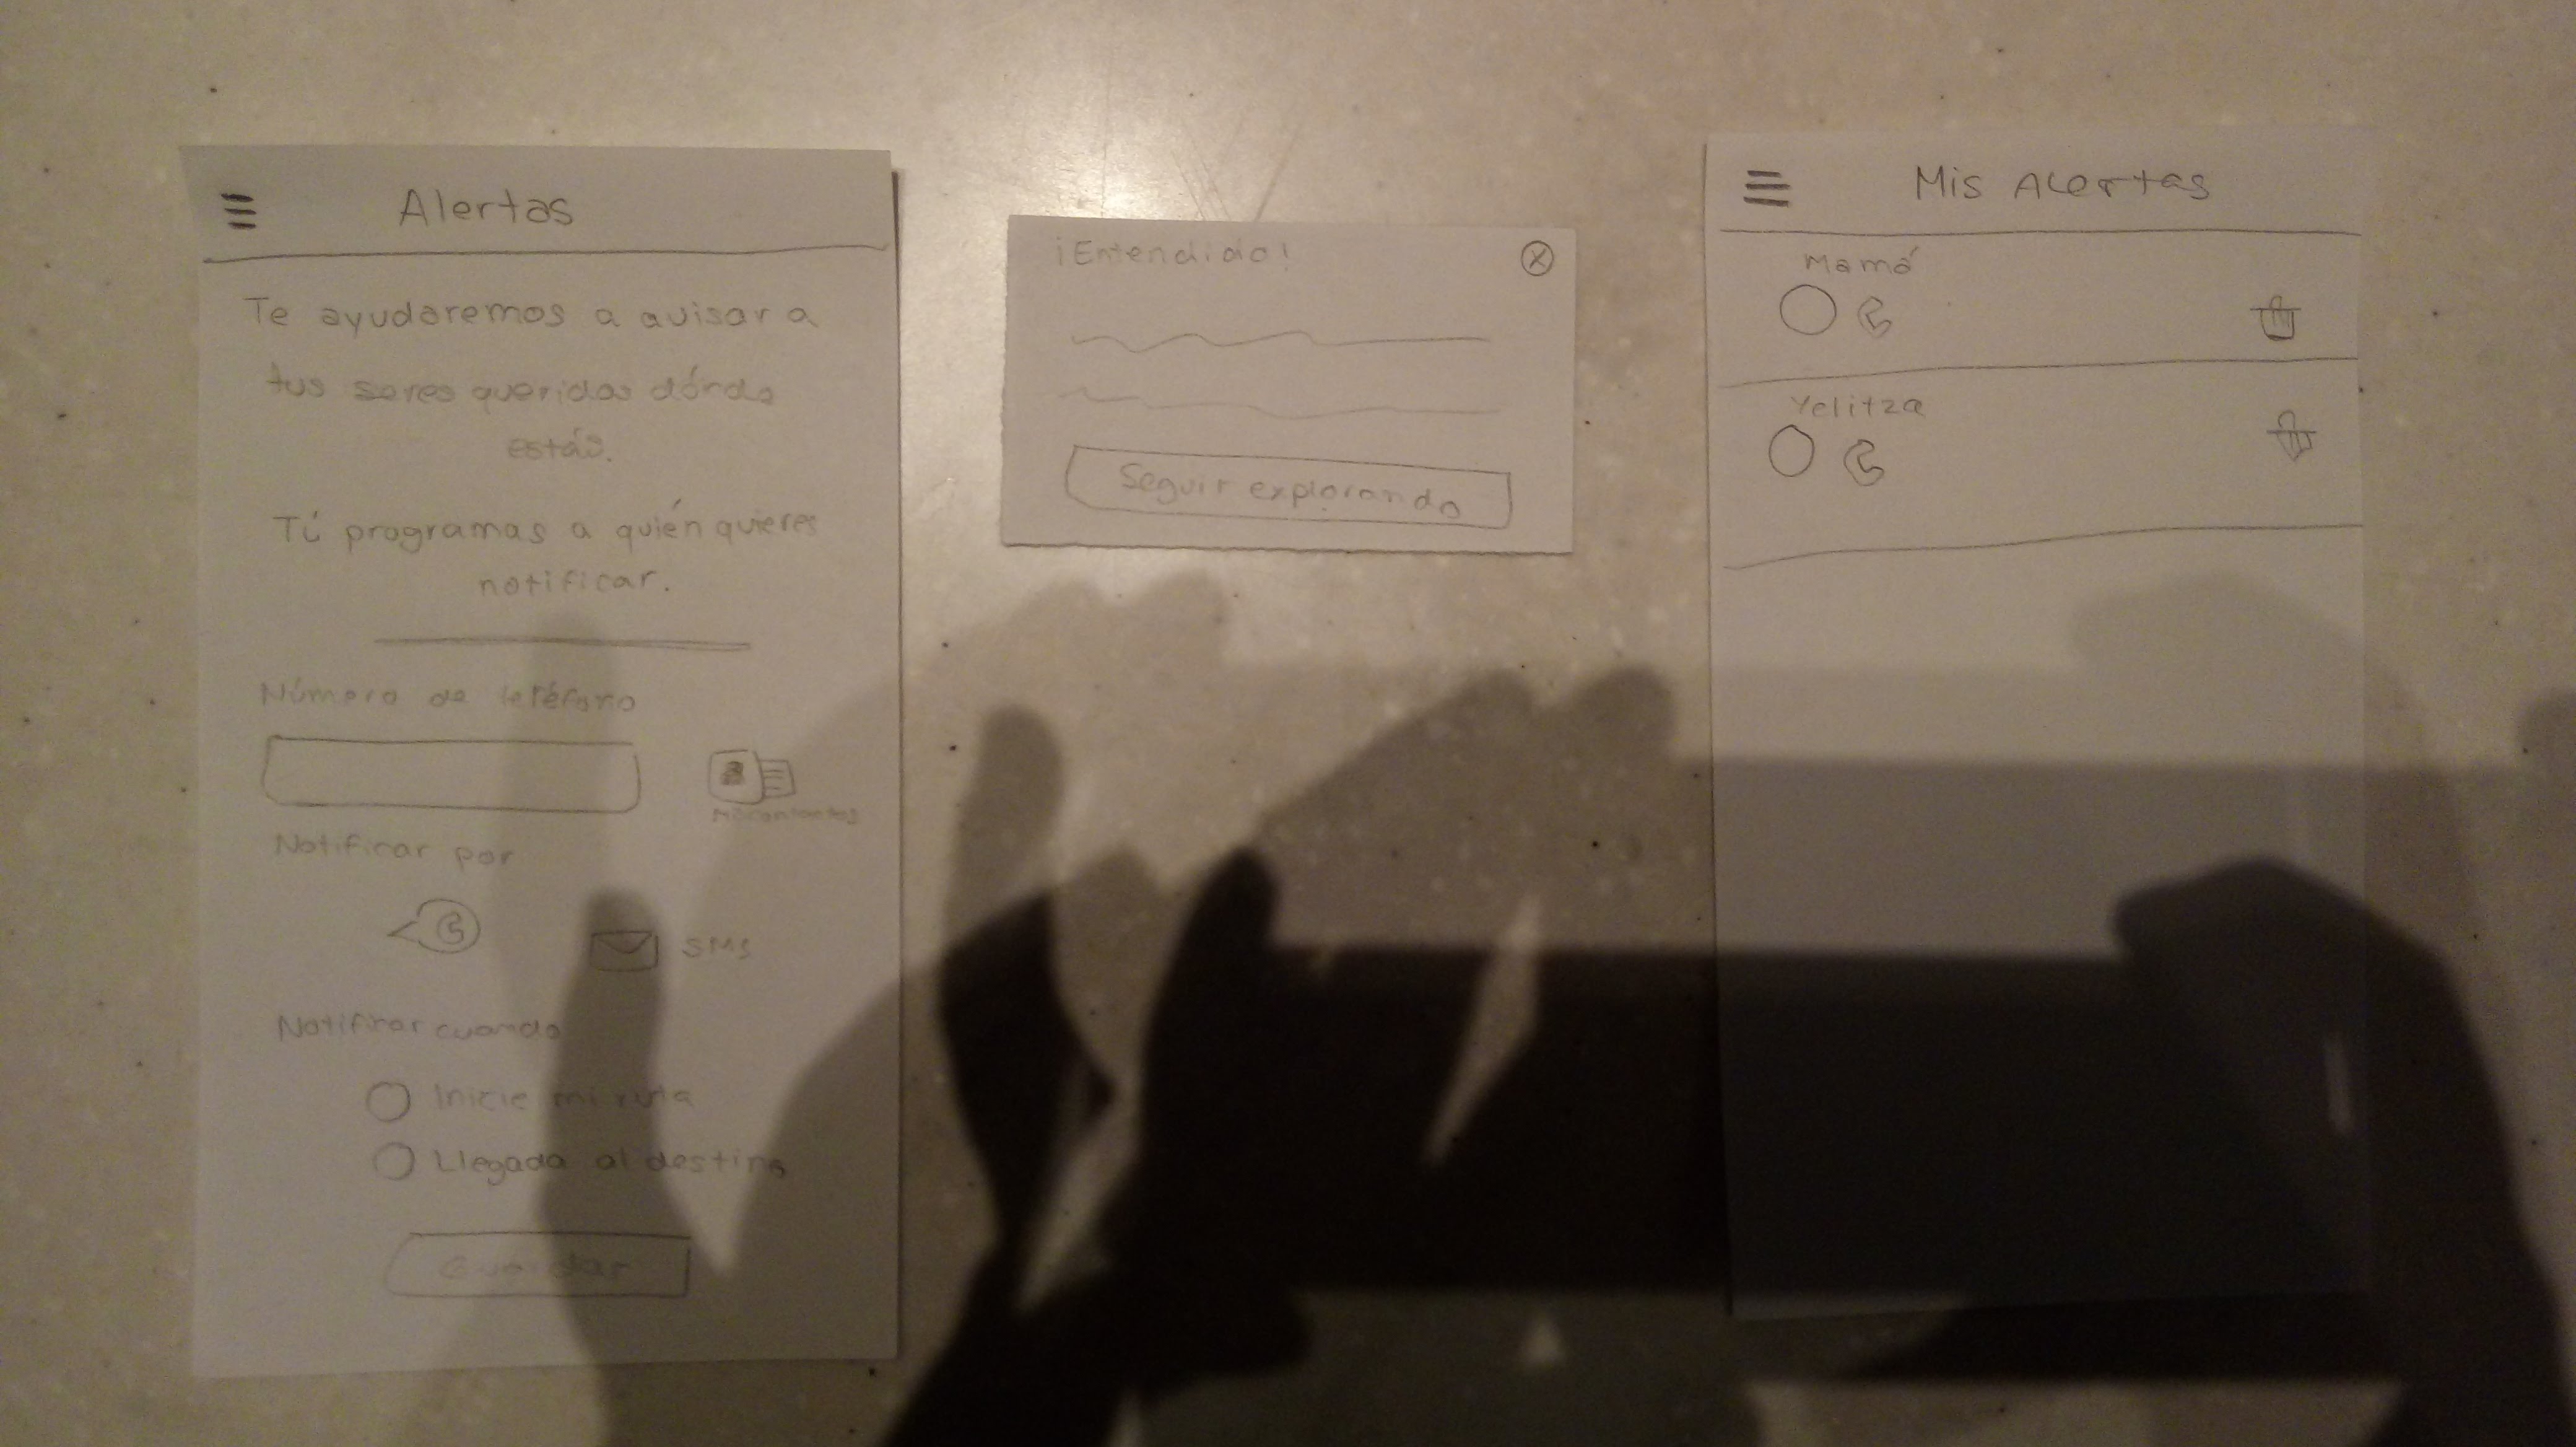 Alertas
Te ayudaremos a avisar a
tus seres queridos dónde
estás.
Tú programas a quién quieres
notificar.
Número de teléfono
Notificar por
SMS
Notificar cuando
Inicie mi ruta
Llegada al destino
Guardar
¡Entendido!
Seguir explorando
Mis Alertas
Mamá
Yelitza